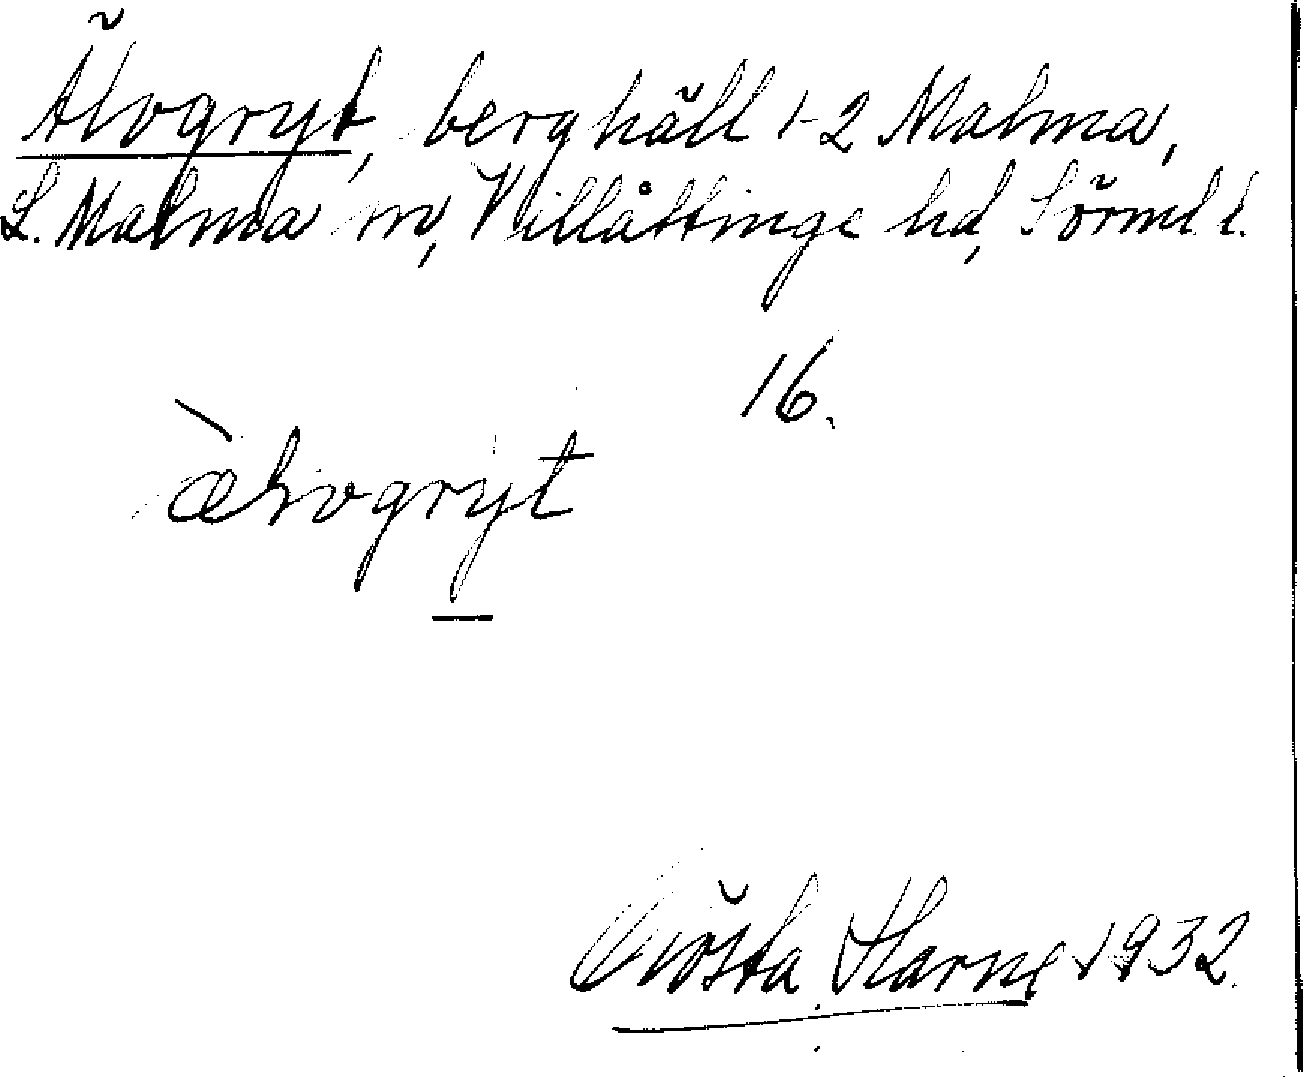 Älvogryt, berghäll 1-2 Malma,
L. Malma sn, Villåttinge hd, Sörml l.
16.
æ̀lvogryt
Gösta Harne 1932.